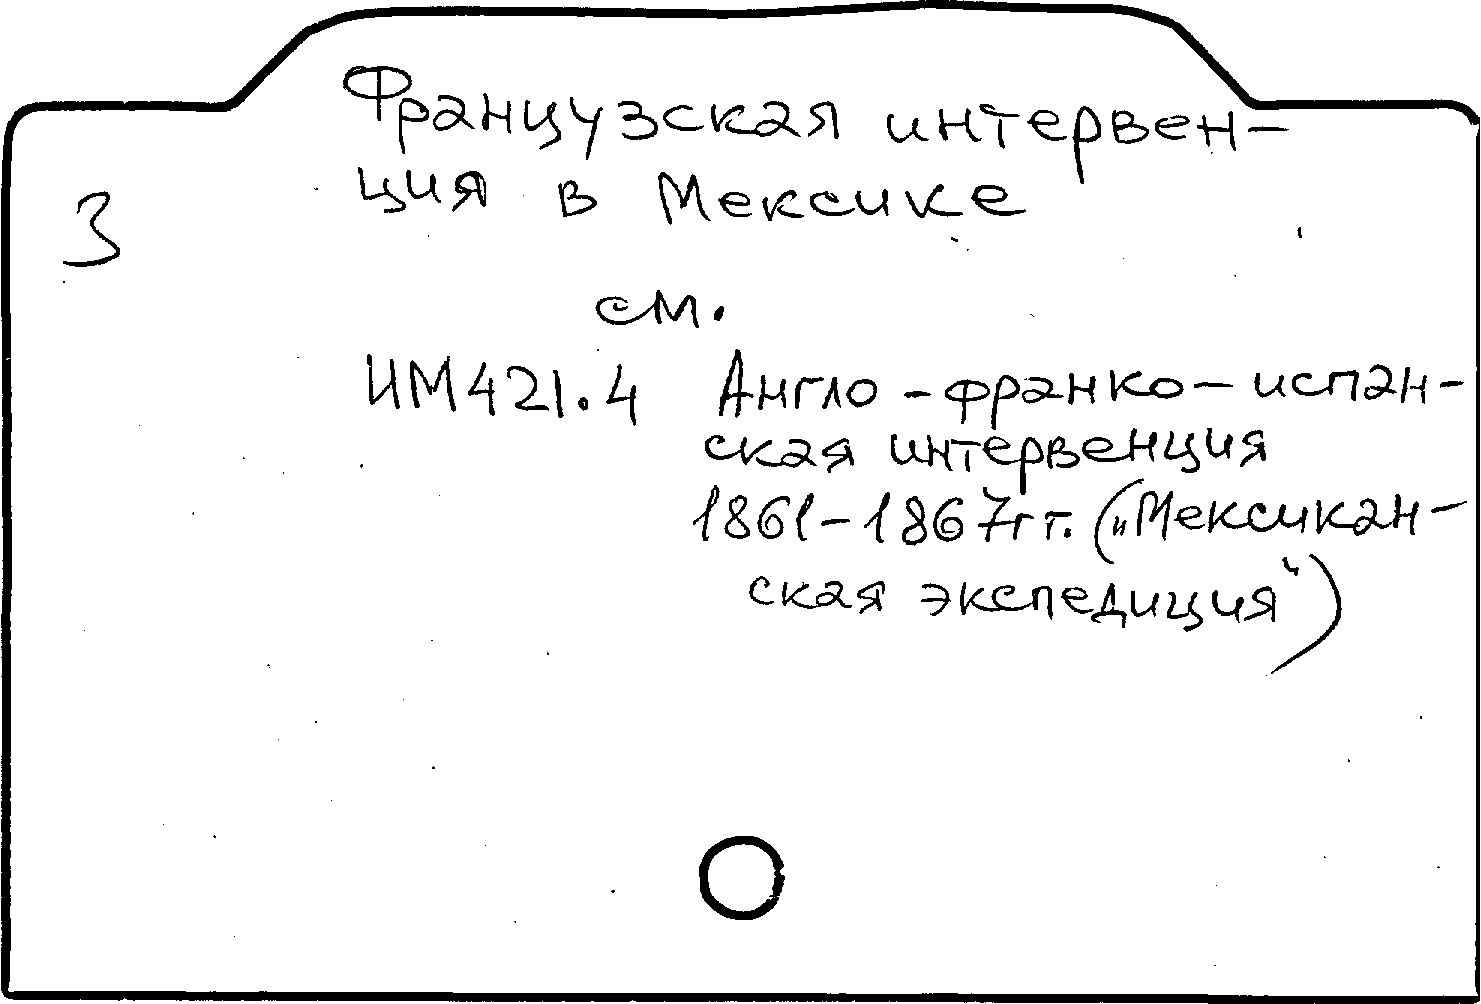 Французская интервен-
ция в Мексике
З
см.
ИМ421.4 Англо-франко-испан-
ская интервенция
1861-1867гг. („Мексикан-
ская экспедиция“)